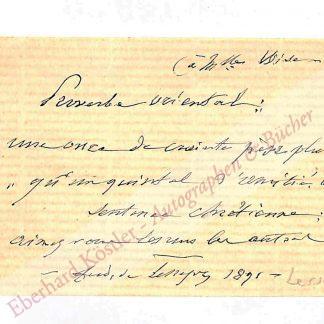 (à Mlles Wise
Proverbe oriental:
une once de crainte pèse plus
„ qu'un quintal d'amitié.
Sentence chrétienne:
aimez vous les uns les autres
Ferd. de Lesseps 1891 -
Eberhard Köstler - Autographen & Bücher